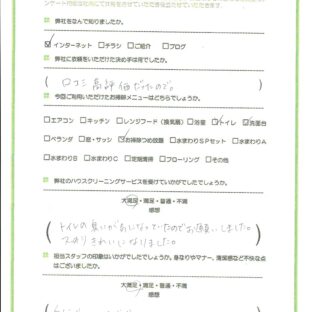 ンケート内容は社内にて共有をさせていただき各役立たせていただきます。
弊社をなんで知りましたか。
☑インターネット □チラシ □ご紹介 □ブログ
弊社に依頼をいただけた決め手は何でしたか。
( 口コミ高評価だったので。 )
今回ご利用いただけたお掃除メニューはどちらでしょうか。
□エアコン □キッチン □レンジフード(換気扇) □浴室 ☑トイレ ☑洗面台
□ベランダ □窓・サッシ ☑お掃除つめ放題 □水まわりSPセット □水まわりA
□水まわりB □水まわりC □定期清掃 □フローリング □その他
弊社のハウスクリーニングサービスを受けていかがでしたでしょうか。
大満足・満足・普通・不満
感想
トイレの臭いが気になっていたのでお願いしました。
スッキリきれいになりました。
担当スタッフの印象はいかがでしたでしょうか。身なりやマナー、清潔感など不快な点
はございましたか。
大満足・満足・普通・不満
感想